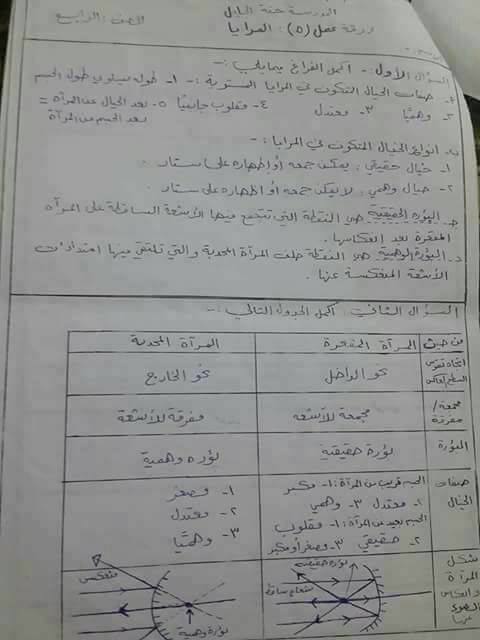 المدرسة جنة البابل
الصف: الرابع
ورقة عمل (٥): المرايا
السؤال الأول - أكمل الفراغ فيما يلي :-
أ- صفات الخيال المتكون في المرايا المستوية :- ١- طوله يساوي طول الجسم
٢- وهميًا ٣- معتدل ٤- مقلوب جانبيًا ٥- بعد الخيال عن المرآة =
بعد الجسم عن المرآة
ب- أنواع الخيال المتكون في المرايا :-
١- خيال حقيقي : يمكن جمعه أو إظهاره على ستار .
٢- خيال وهمي : لا يمكن جمعه أو إظهاره على ستار .
ج- البؤرة الحقيقية هي النقطة التي تتجمع فيها الأشعة الساقطة على المرآة
المقعرة بعد انعكاسها .
د- البؤرة الوهمية هي النقطة خلف المرآة المحدبة والتي تلتقي فيها امتدادات
الأشعة المنعكسة عنها .
السؤال الثاني : أكمل الجدول التالي :-
من حيث المرآة المقعرة المرآة المحدبة
اتجاه تقوس
السطح العاكس
نحو الداخل نحو الخارج
مجمعة /
مفرقة
مجمعة للأشعة مفرقة للأشعة
البؤرة بؤرة حقيقية بؤرة وهمية
صفات
الخيال
الجسم قريب من المرآة: ١- مكبر
٢- معتدل ٣- وهمي
الجسم بعيد عن المرآة: ١- مقلوب
٢- حقيقي ٣- مصغر أو مكبر
١- مصغر
٢- معتدل
٣- وهميًا
شكل
المرآة
وانعكاس
الضوء
عنها
بؤرة حقيقية
شعاع ساقط
منعكس
بؤرة وهمية